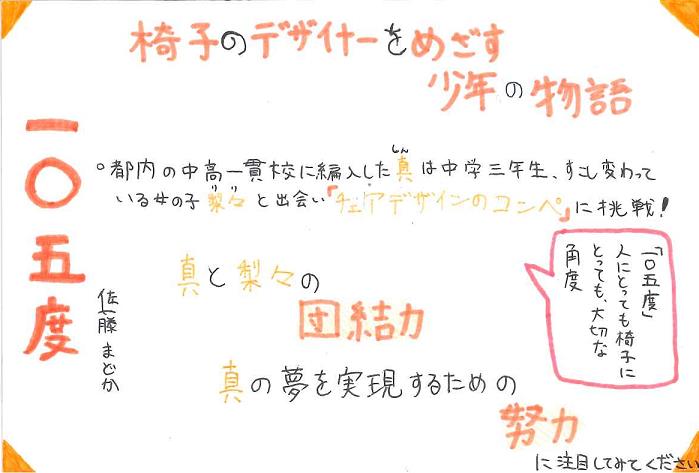 椅子のデザイナーをめざす
少年の物語
一〇五度
佐藤まどか
。都内の中高一貫校に編入した真は中学三年生、すこし変わって
しん
いる女の子梨々と出会い「チェアデザインのコンペ」に挑戦！
りり
真と梨々の
団結力
真の夢を実現するための
努力
に注目してみてください
「一〇五度」
人にとっても椅子に
とっても、大切な
角度